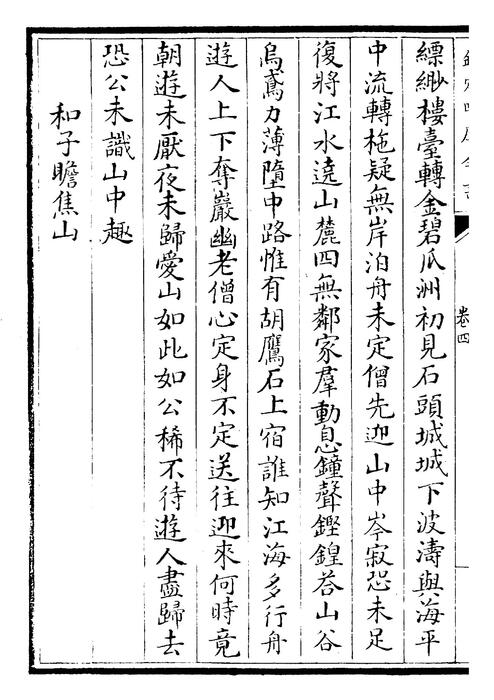 欽定四庫全書
卷四
縹緲樓臺轉金碧瓜洲初見石頭城城下波濤與海平
中流轉柂疑無岸泊舟未定僧先迎山中岑寂恐未足
復將江水遶山麓四無鄰家羣動息鐘聲鏗鍠荅山谷
烏鳶力薄墮中路惟有胡鷹石上宿誰知江海多行舟
遊人上下奪巖幽老僧心定身不定送往迎來何時竟
朝遊未厭夜未歸愛山如此如公稀不待遊人盡歸去
恐公未識山中趣
和子瞻焦山